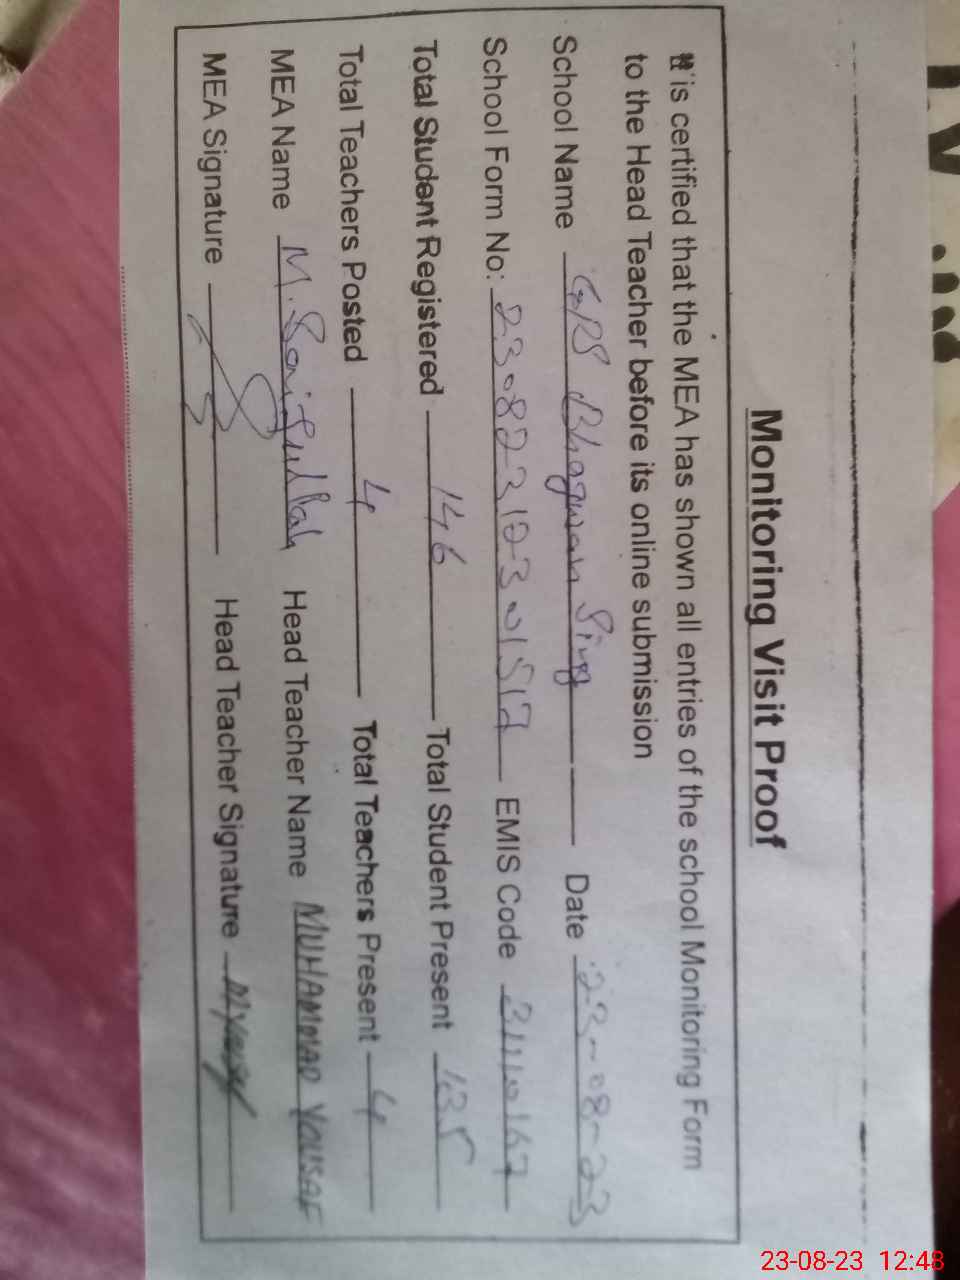 Monitoring Visit Proof
It is certified that the MEA has shown all entries of the school Monitoring Form
to the Head Teacher before its online submission
School Name GPS Bhagwan Sing Date 23-08-23
School Form No: EMIS Code 31110167
Total Student Registered 146 Total Student Present 135
Total Teachers Posted 4 Total Teachers Present 4
MEA Name M. Head Teacher Name MUHAMMAD YOUSAF
MEA Signature Head Teacher Signature MYousaf
23-08-23 12:48